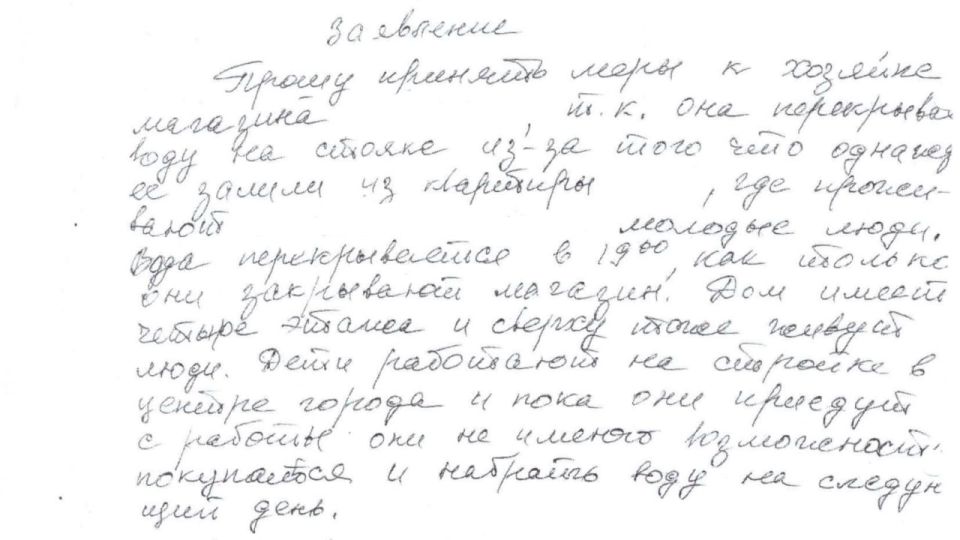 Заявление
Прошу принять меры к хозяйке
магазина , т.к. она перекрывае
воду на стояке из-за того что однажд
ее залили из квартиры , где прожи-
вают молодые люди.
Вода перекрывается в 19⁰⁰, как только
они закрывают магазин. Дом имеет
четыре этажа и сверху тоже живут
люди. Дети работают на стройке в
центре города и пока они приедут
с работы они не имеют возможност
покупаться и набрать воду на следую
щий день.